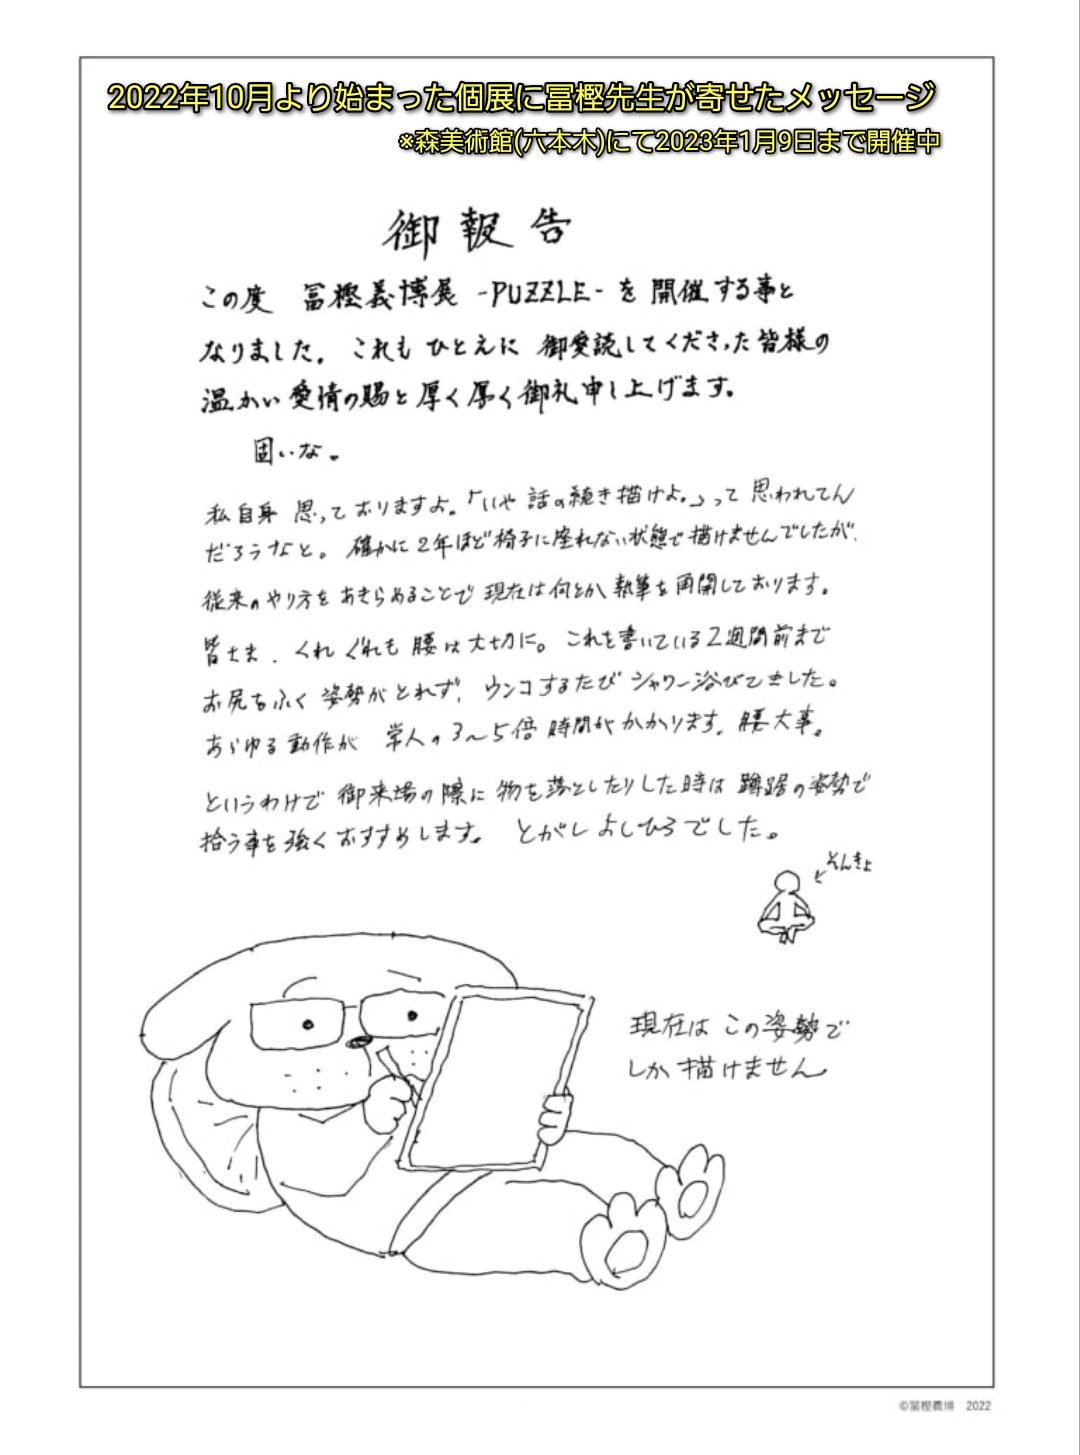 2022年10月より始まった個展に冨樫先生が寄せたメッセージ
※森美術館(六本木)にて2023年1月9日まで開催中
御報告
この度 冨樫義博展 -PUZZLE- を開催する事と
なりました。これもひとえに 御愛読してくださった皆様の
温かい愛情の賜と厚く厚く御礼申し上げます。
固いな。
私自身 思っておりますよ。「いや 話の続き描けよ。」って思われてん
だろうなと。確かに2年ほど椅子に座れない状態で描けませんでしたが、
従来のやり方をあきらめることで現在は何とか執筆を再開しております。
皆さま、くれぐれも腰は大切に。これを書いている2週間前まで
お尻もふく姿勢がとれず、ウンコするたびシャワー浴びてました。
あらゆる動作が 常人の3〜5倍時間がかかります。腰大事。
というわけで御来場の際に物を落としたりした時は蹲踞の姿勢で
拾う事を強くおすすめします。 とがしよしひろでした。
そんきょ
現在はこの姿勢で
しか描けません
©冨樫義博 2022